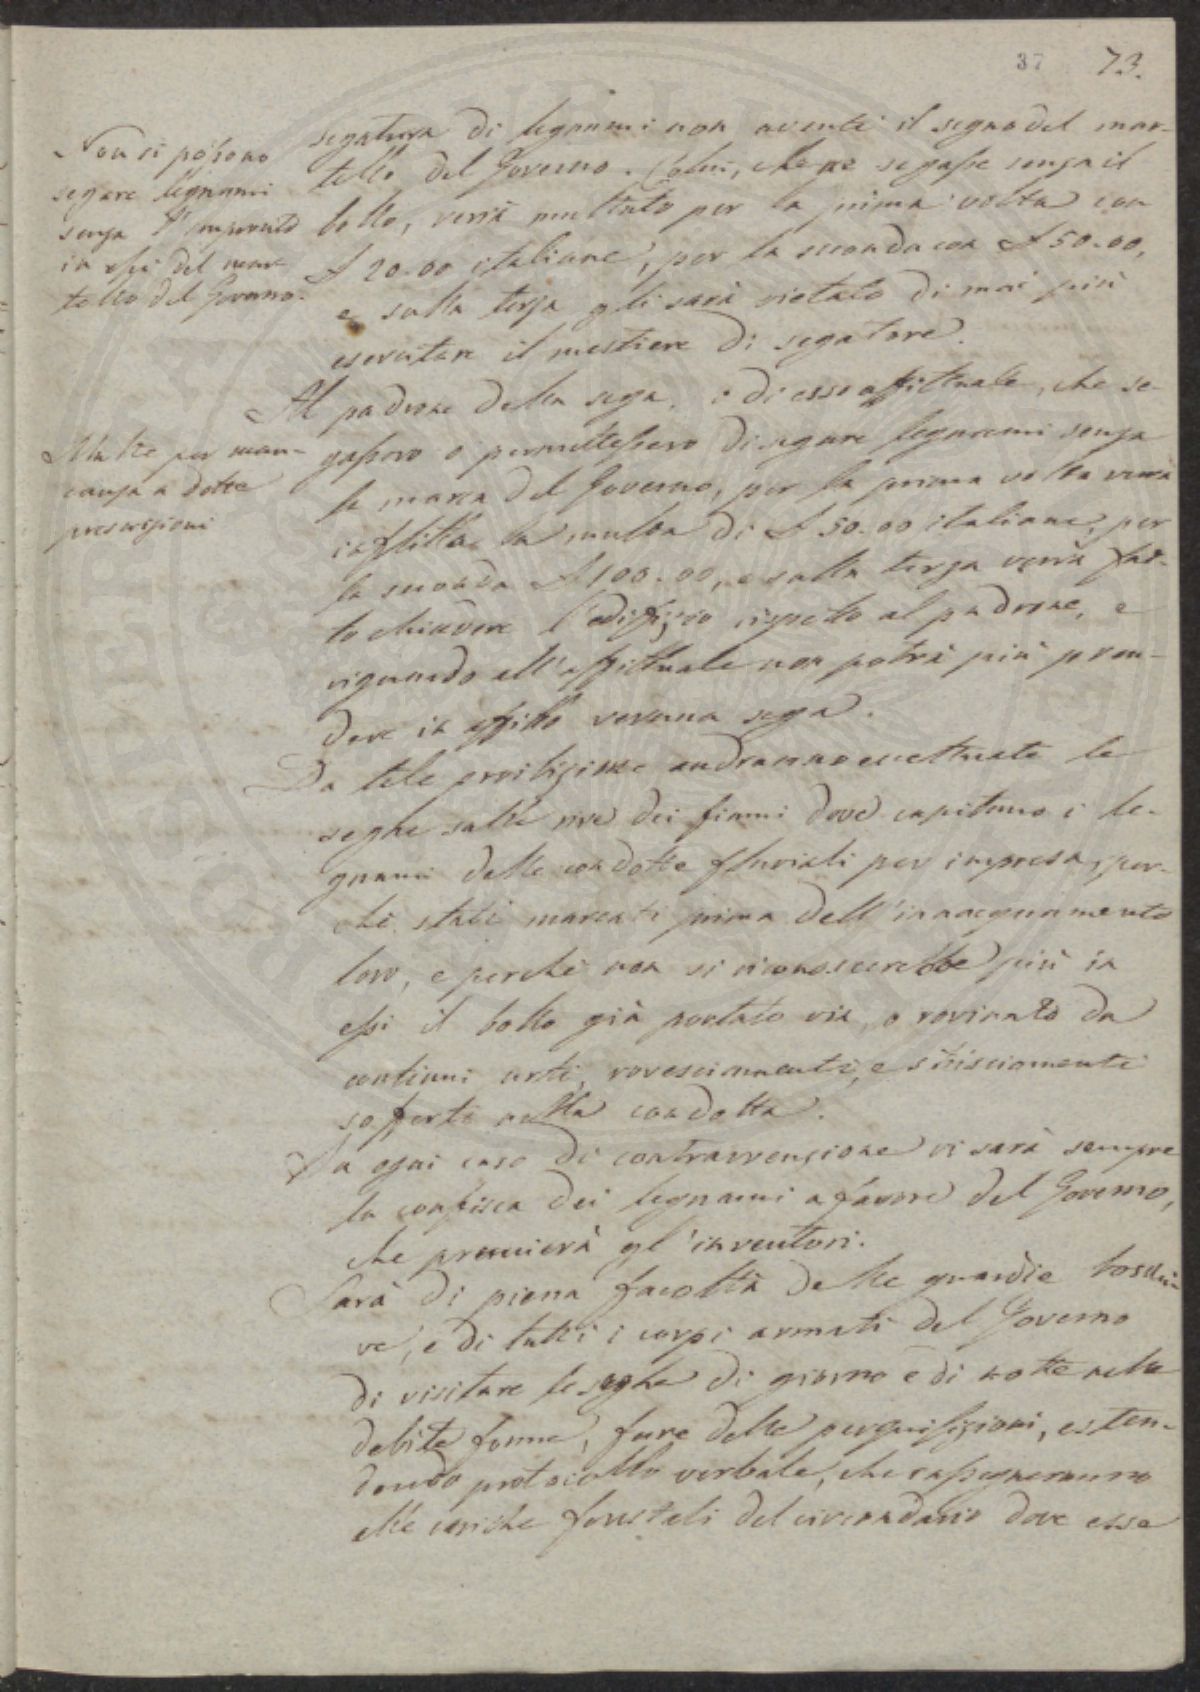 37 73.
Non si possono
segare legnami
senza l'impronto
in essi del mar-
tello del Governo.
segatura di legnami non aventi il segno del mar-
tello del Governo. Colui, che ne segasse senza il
bollo, verrà multato per la prima volta con
£ 20.00 italiane, per la seconda con £ 50.00,
e sulla terza gli sarà vietato di mai più
esercitare il mestiere di segatore.
Multe per man-
canza a dette
prescrizioni
Al padrone della sega, o di esso affittuale, che se-
gassero o permettessero di segare legnami senza
la marca del Governo, per la prima volta verrà
inflitta la multa di £ 50.00 italiane, per
la seconda £ 100.00, e sulla terza verrà fat-
to chiudere l'edifizio rispetto al padrone, e
riguardo all'affittuale non potrà più pren-
dere in affitto veruna sega.
Da tale proibizione andranno eccettuate le
seghe sulle rive dei fiumi dove capitano i le-
gnami delle condotte fluviali per impresa, per-
chè stati marcati prima dell'innacquamento
loro, e perchè non si riconoscerebbe più in
essi il bollo già portato via, o rovinato da
continui urti, rovesciamenti, e strisciamenti
sofferti nella condotta.
In ogni caso di contravvenzione vi sarà sempre
la confisca dei legnami a favore del Governo,
che premierà gl'inventori.
Sarà di piena facoltà delle guardie boschi-
ve, e di tutti i corpi armati del Governo
di visitare le seghe di giorno e di notte nelle
debite forme, fare delle perquisizioni, esten-
dendo protocollo verbale, che rassegneranno
alle cariche forestali del circondario dove esse